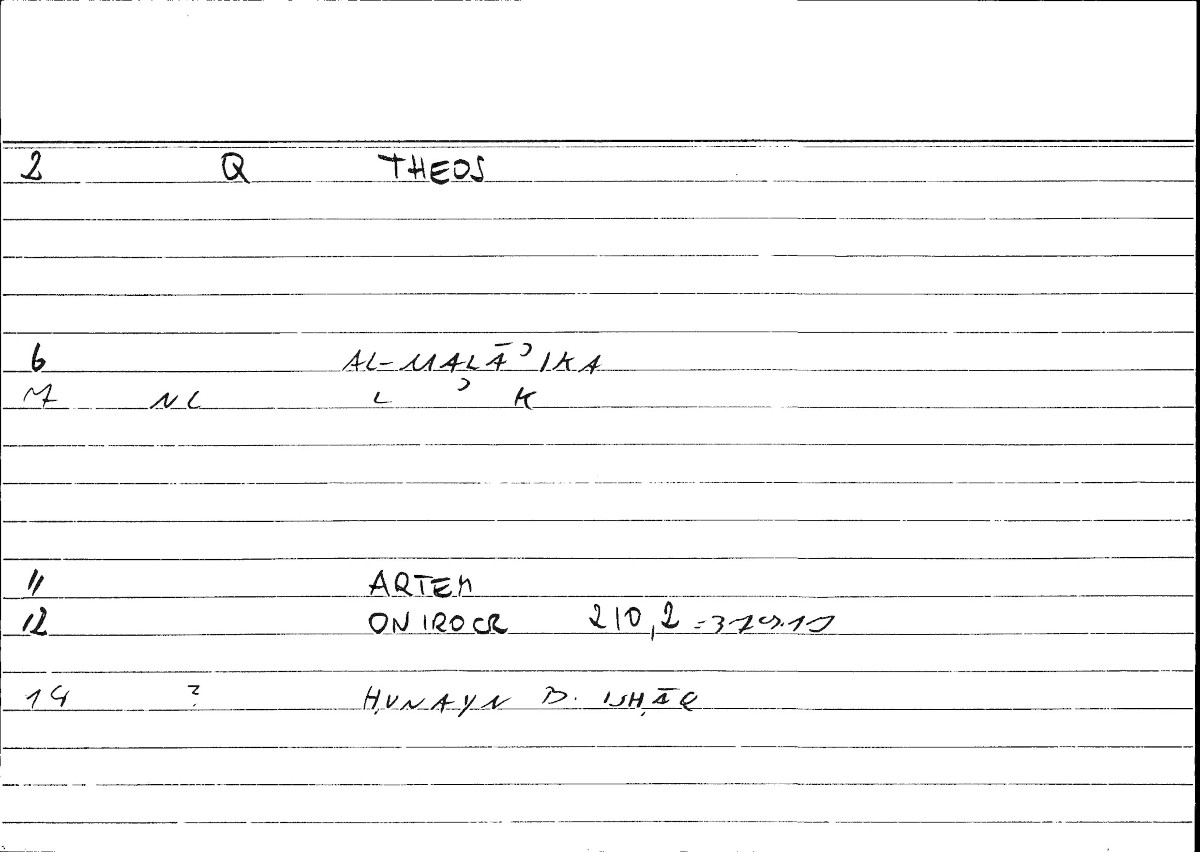 2 Q THEOS
6 AL-MALĀʾIKA
7 NC L ʾ K
11 ARTEM
12 ONIROCR 210,2
14 ? ḤUNAYN B. ISḤĀQ